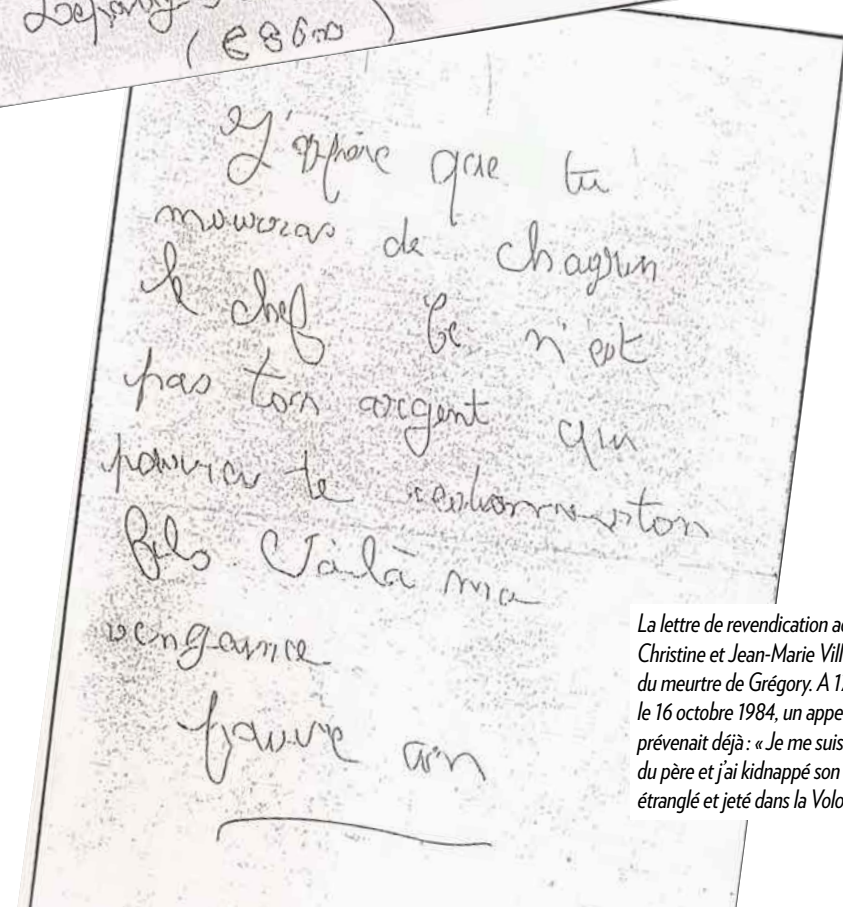 ( 88600 )
J'espère que tu
mourras de chagrin
le chef Ce n'est
pas ton argent qui
pourra te redonner ton
fils Voilà ma
vengeance
pauvre con
La lettre de revendication
Christine et Jean-Marie Vill
du meurtre de Grégory. A
le 16 octobre 1984, un appe
prévenait déjà : « Je me suis
du père et j'ai kidnappé son
étranglé et jeté dans la Volo